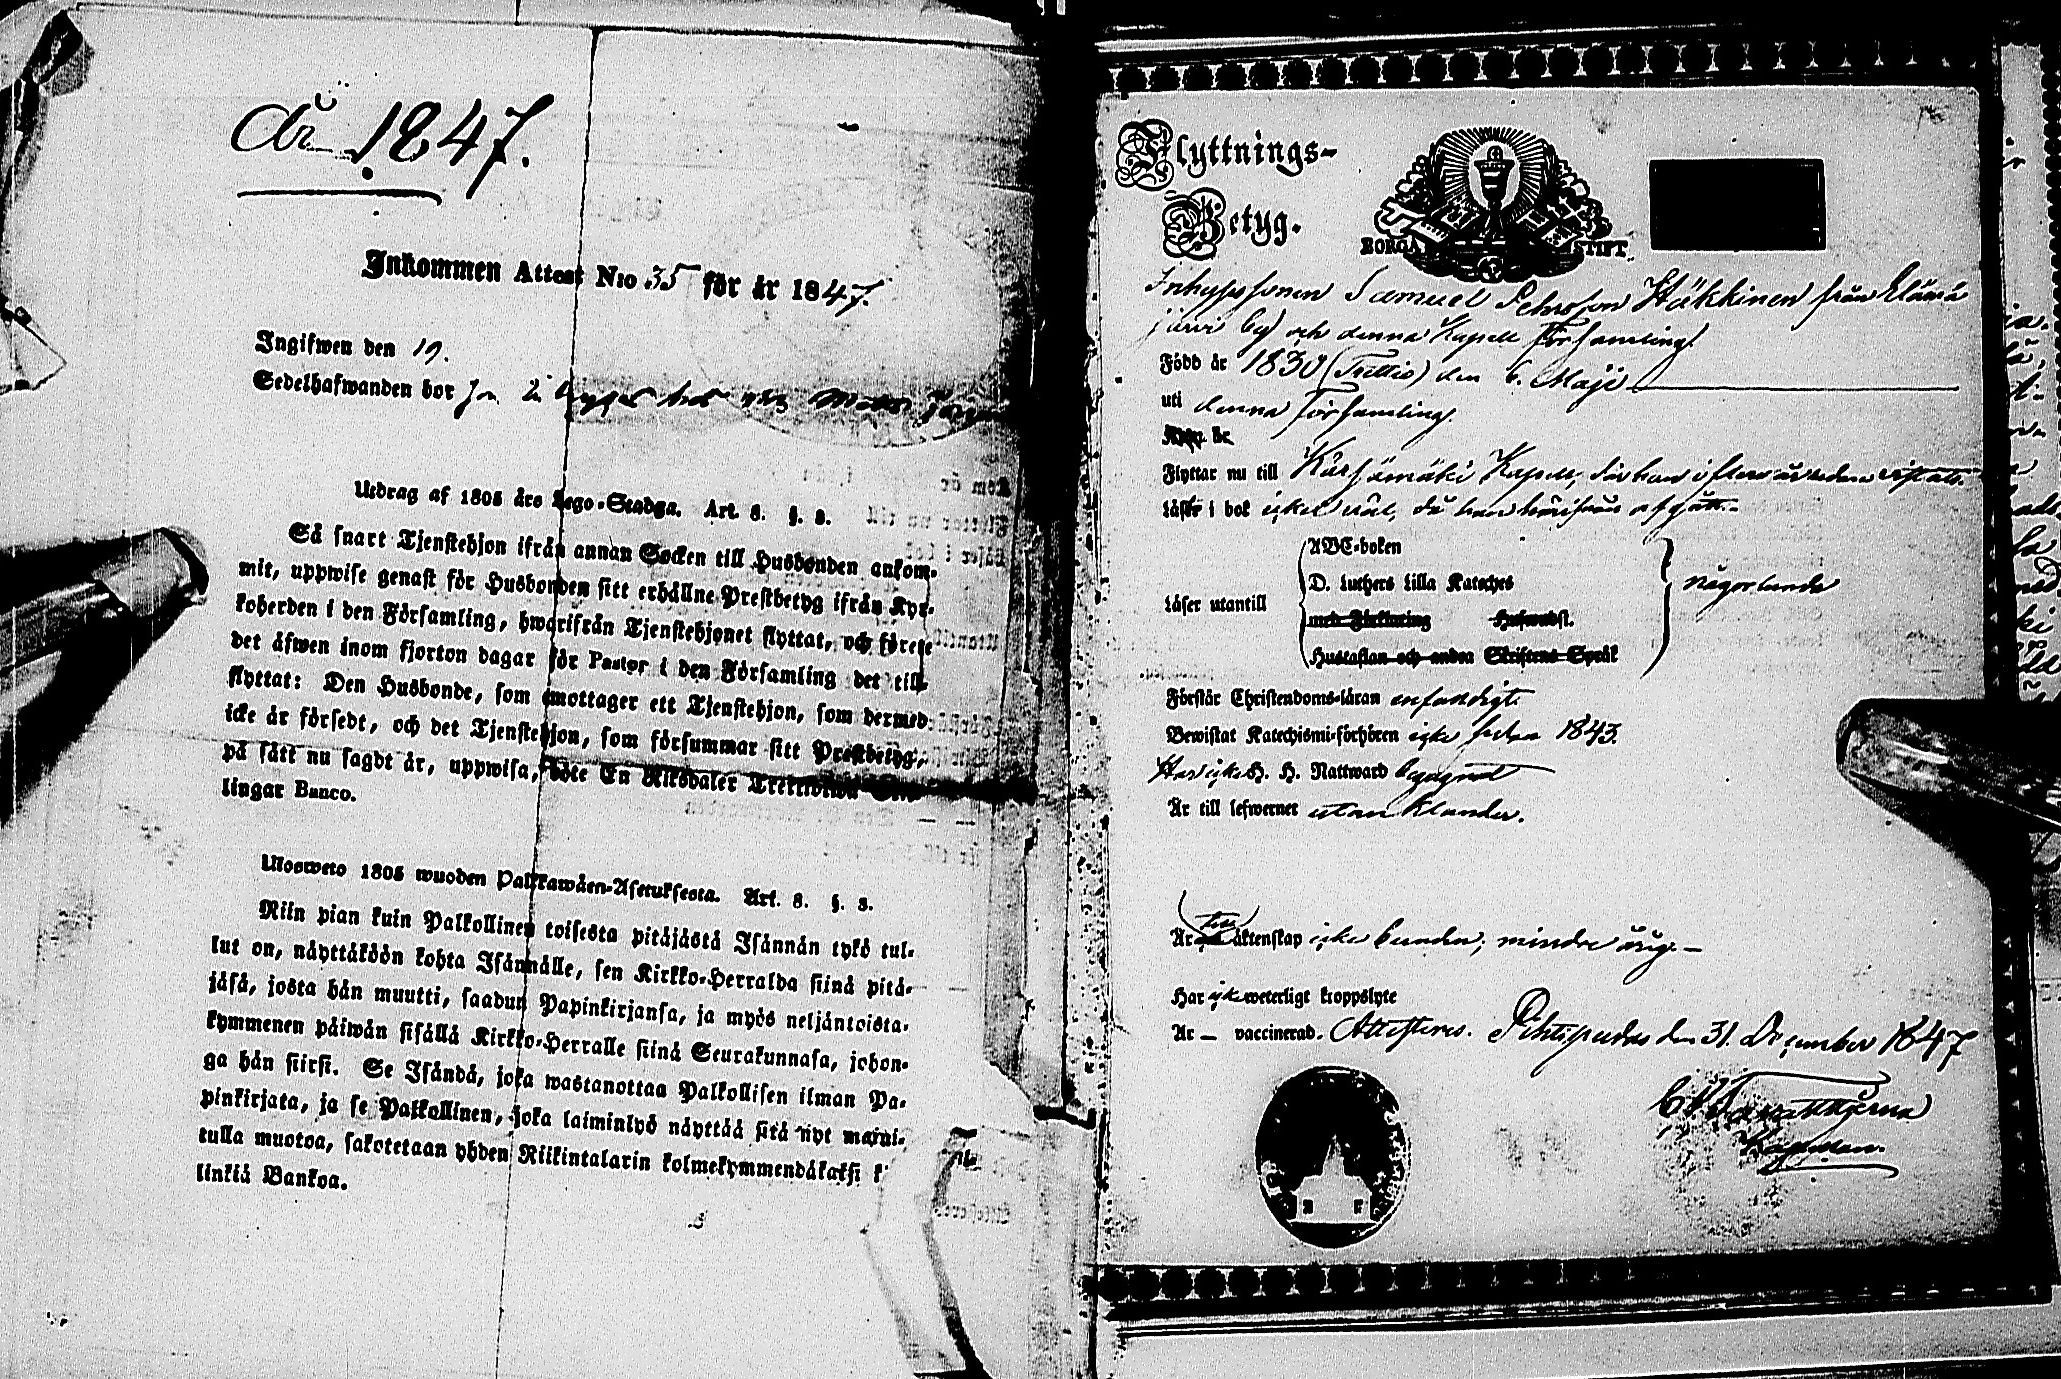 År 1847.
Inkommen Attest N:o 35 för år 1847.
Ingifwen den 19.
Sedelhafwanden bor
Utdrag af 1805 års Lego-Stadga. Art. 8. §. 3.
Så snart Tjenstehjon ifrån annan Socken till Husbonden ankom-
mit, uppwise genast för Husbonden sitt erhållne Prestbetyg ifrån Kyr-
koherden i den Församling, hwarifrån Tjenstehjonet flyttat, och förete
det äfwen inom fjorton dagar för Pastor i den Församling det till-
flyttat: Den Husbonde, som emottager ett Tjenstehjon, som dermed
icke är försedt, och det Tjenstehjon, som försummar sitt Prestbetyg,
på sätt nu sagdt är, uppwisa, böte En Riksdaler
lingar Banco.
Ulosweto 1805 wuoden Palkkawäen-Asetuksesta. Art. 8. §. 3.
Niin pian kuin Palkollinen toisesta pitäjästä Isännän tykö tul-
lut on, näyttäköön kohta Isännälle, sen Kirkko-Herralda siinä pitä-
jäsä, josta hän muutti, saadun Papinkirjansa, ja myös neljäntoista-
kymmenen päiwän sisällä Kirkko-Herralle siinä Seurakunnasa, johon-
ga hän siirsi. Se Isändä, joka wastanottaa Palkollisen ilman Pa-
pinkirjata, ja se Palkollinen, joka laiminlyö näyttää sitä nyt maini-
tulla muotoa, sakotetaan yhden Riikintalarin kolmekymmendäkaksi
linkiä Bankoa.
Flyttnings-
Betyg.
BORGÅ STIFT.
Inhyssonen Samuel Pehrsson Häkkinen från Elämä
järvi by och denna Kapell Församling
Född år 1830 (Trettio) den 6. Maji
uti denna Församling.
Flyttar nu till Kärsämäki Kapell, där han i flera år redan vistats.
Läser i bok icke väl, då han härifrån afgått.
ABC-boken
D. Luthers Lilla Kateches
Läser utantill någorlunda
med Förklaring Hufwudst.
Hustaflan och andra Skriftens Språk
Förstår Christendoms-läran enfaldigt
Bewistat Katechismi-förhören icke sedan 1843.
Har icke H. H. Nattward begagnat
Är till lefwernet utan klander.
Är till äktenskap icke bunden; mindre årig.
Har icke weterligt kroppslyte
Är — vaccinerad. Attesteras. Pihtipudas den 31. December 1847
Kapellan.